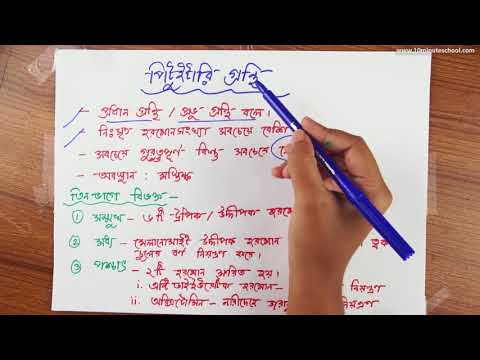 www.10minuteschool.com
পিটুইটারি গ্রন্থি
- প্রধান গ্রন্থি / প্রভু গ্রন্থি বলে।
- নিঃসৃত হরমোন সংখ্যা সবচেয়ে বেশি
- সবচেয়ে গুরুত্বপূর্ণ কিন্তু সবচেয়ে
- অবস্থান : মস্তিষ্ক
তিন ভাগে বিভক্ত
① সম্মুখ - ৬টি ট্রপিক / উদ্দীপক
② মধ্য - মেলানোসাইট উদ্দীপক হরমোন ত্বক
চুলের বর্ণ নিয়ন্ত্রণ করে।
③ পশ্চাৎ - ২টি হরমোন ক্ষরিত হয়।
i. এন্টিডাইইউরেটিক হরমোন - নিয়ন্ত্রণ
ii. অক্সিটোসিন - নারীদেহে নিয়ন্ত্রণ